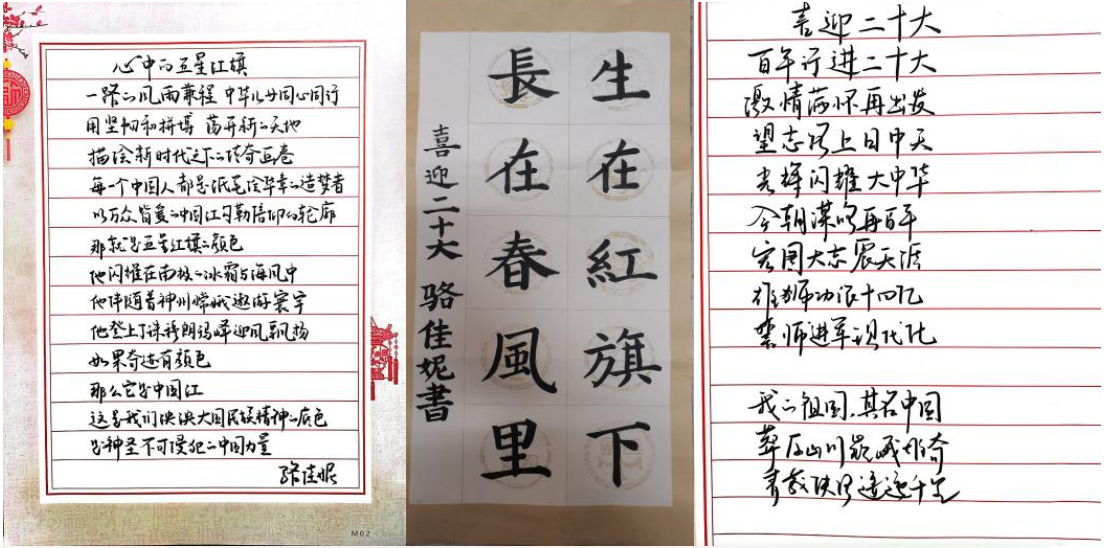 心中的五星红旗
一路的风雨兼程 中华儿女同心同行
用坚韧和拼搏 荡开新的天地
描绘新时代之下的传奇画卷
每一个中国人都是纸笔绘华章的造梦者
以万众皆爱的中国红勾勒信仰的轮廓
那就是五星红旗的颜色
他闪耀在南极的冰霜与海风中
他伴随着神州嫦娥遨游寰宇
他登上了珠穆朗玛峰迎风飘扬
如果奇迹有颜色
那么它是中国红
这是我们泱泱大国民族精神的底色
是神圣不可侵犯的中国力量
骆佳妮
M02
生在紅旗下
長在春風里
喜迎二十大 骆佳妮書
喜迎二十大
百年行进二十大
激情满怀再出发
望志路上日中天
光辉闪耀大中华
今朝谋略再百年
宏图大志震天涯
雄狮功浪十四亿
禁师进军现代化
我的祖国,其名中国
山川巍峨雄奇